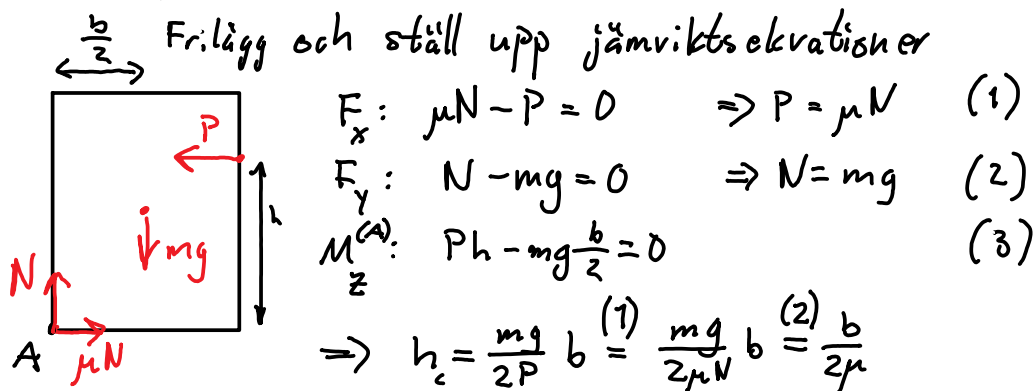 b/2 Frilägg och ställ upp jämviktsekvationer
F_x: μN - P = 0 => P = μN (1)
P
F_y: N - mg = 0 => N = mg (2)
h
mg
M_z^(A): Ph - mg b/2 = 0 (3)
N
A μN
=> h_c = mg/2P b (1)= mg/2μN b (2)= b/2μ